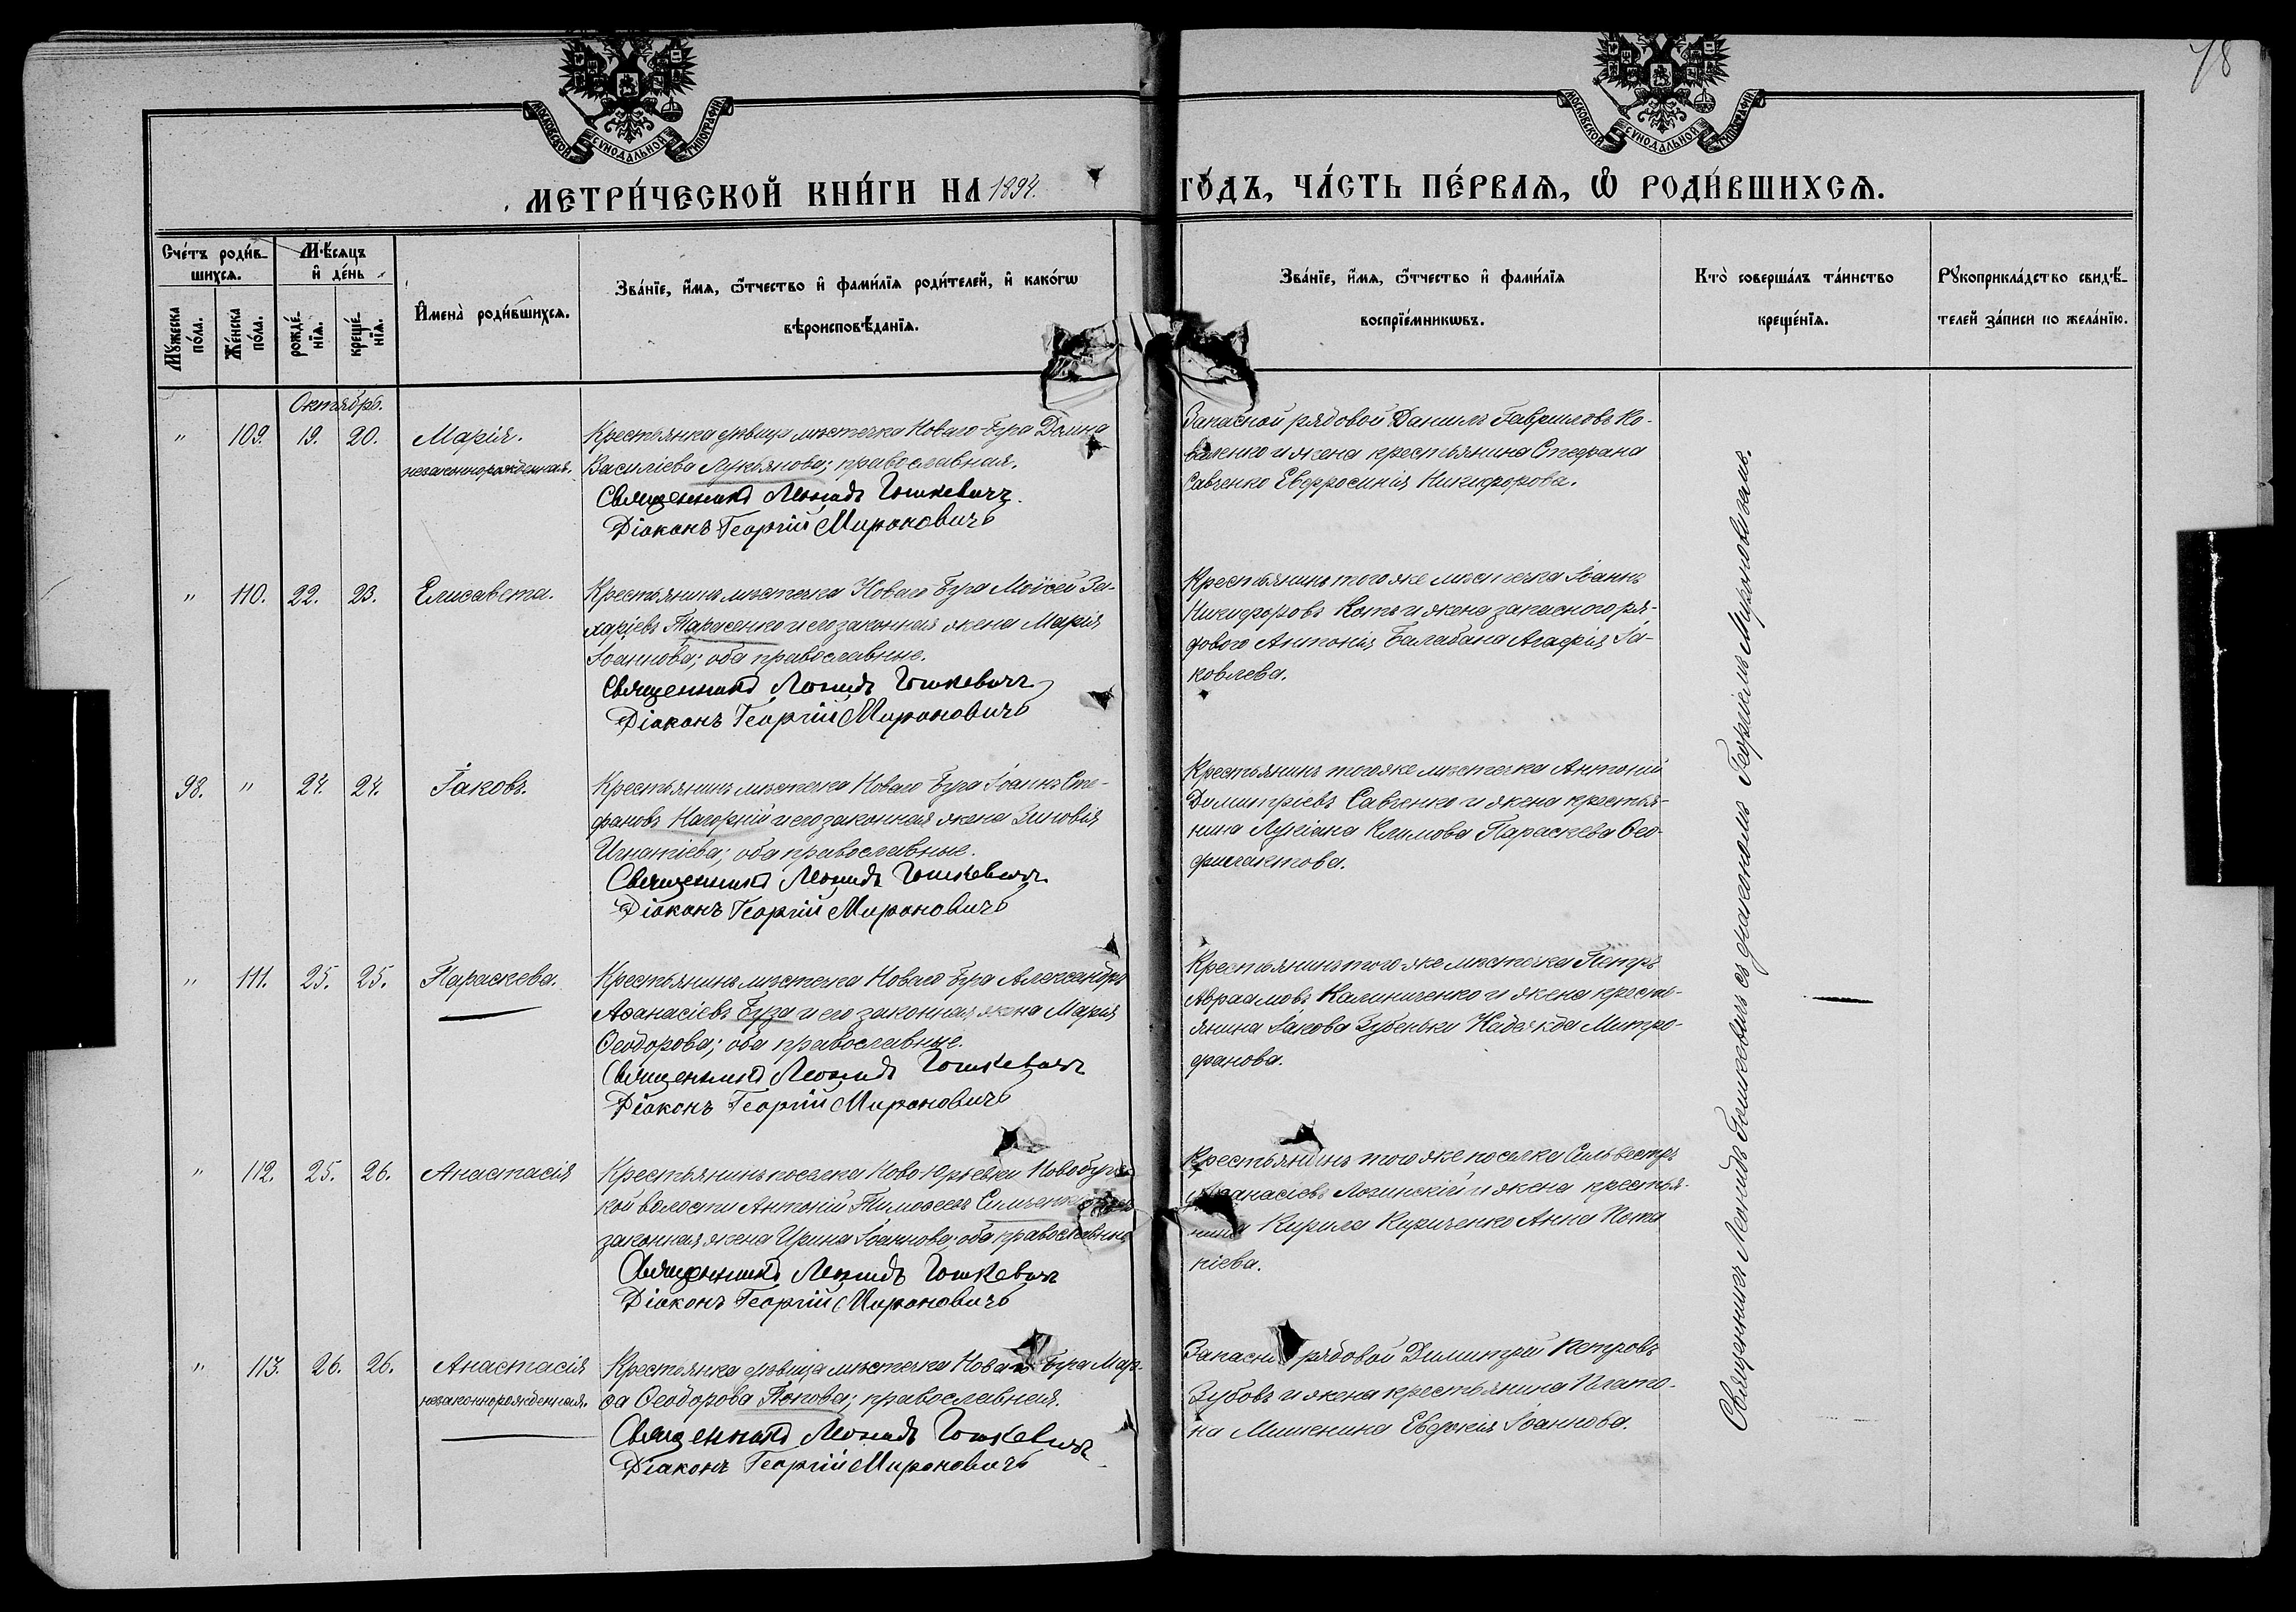 78
МОСКОВСКОЙ СУНОДАЛЬНОЙ ТИПОГРАФІИ
МОСКОВСКОЙ СУНОДАЛЬНОЙ ТИПОГРАФІИ
МЕТРИ́ЧЕСКОЙ КНИ́ГИ НА 1894. ГО́ДЪ, ЧА́СТЬ ПЕ́РВАѦ, Ѽ РОДИ́ВШИХСѦ.
Сче́тъ роди́в-
шихсѧ.
Мꙋжеска по́ла.
Же́нска по́ла.
Мѣ́сѧцъ
и҆ де́нь
рожде́-
нїѧ.
креще́-
нїѧ.
И҆мена̀ роди́вшихсѧ.
Зва́нїе, и҆́мѧ, ѻ҆́тчество и҆ фами́лїѧ роди́телей, и҆ како́гѡ
вѣроисповѣ́данїѧ.
Зва́нїе, и҆́мѧ, ѻ҆́тчество и҆ фами́лїѧ
воспрїе́мникѡвъ.
Кто̀ соверша́лъ та́инство
креще́нїѧ.
Рꙋкоприкла́дство свидѣ́-
телей за́писи по жела́нїю.
Октябрь.
" 109. 19. 20. Марія.
незаконнорожденная.
Крестьянка дѣвица мѣстечка Новаго-Буга Домна
Василіева Лукьянова; православная.
Священникъ Леонидъ Гошкевичъ.
Діаконъ Георгій Мироновичъ
Запасной рядовой Данiилъ Гавриловъ Ко-
валенко и жена крестьянина Стефана
Савченко Евфросинія Никифорова.
" 110. 22. 23. Елисавета.
Крестьянинъ мѣстечка Новаго-Буга Моисей За-
харіевъ Тарасенко и его законная жена Марія
Іоаннова; оба православные.
Священникъ Леонидъ Гошкевичъ
Діаконъ Георгій Мироновичъ
Крестьянинъ того же мѣстечка Іоаннъ
Никифоровъ Котъ и жена запасного ря-
дового Антонія Балабана Агафія Іа-
ковлева.
98. " 24. 24. Іаковъ.
Крестьянинъ мѣстечка Новаго-Буга Іоаннъ Сте-
фановъ Нагорній и его законная жена Зиновія
Игнатіева; оба православные.
Священникъ Леонидъ Гошкевичъ
Діаконъ Георгій Мироновичъ
Крестьянинъ того же мѣстечка Антоній
Димитріевъ Савченко и жена крестья-
нина Лукіана Климова Параскева Ѳео-
филактова.
" 111. 25. 25. Параскева.
Крестьянинъ мѣстечка Новаго-Буга Александръ
Аѳанасіевъ Буза и его законная жена Марія
Ѳеодорова; оба православные.
Священникъ Леонидъ Гошкевичъ
Діаконъ Георгій Мироновичъ
Крестьянинъ того-же мѣстечка Петръ
Авраамовъ Калиниченко и жена кресть-
янина Іакова Зубенька Надежда Митро-
фанова.
" 112. 25. 26. Анастасія
Крестьянинъ поселка Ново-Юрьевки Новобугс-
кой волости Антоній Тимоѳеевъ
законная жена Ирина Іоаннова; оба православные
Священникъ Леонидъ Гошкевичъ
Діаконъ Георгій Мироновичъ
Крестьянинъ того же поселка Сильвестръ
Аѳанасіевъ Логинскій и жена крестья-
нина Кирила Кириченко Анна Пота
піева.
" 113. 26. 26. Анастасія
незаконнорожденная.
Крестьянка дѣвица мѣстечка Новаго-Буга Мар-
ѳа Ѳеодорова Попова; православная.
Священникъ Леонидъ Гошкевичъ
Діаконъ Георгій Мироновичъ
Запасный рядовой Димитрій Петровъ
Зубовъ и жена крестьянина Плато-
на Мишенина Евдокія Іоаннова.
Священникъ Леонидъ Гошкевичъ съ діакономъ Георгіемъ Мироновичемъ.